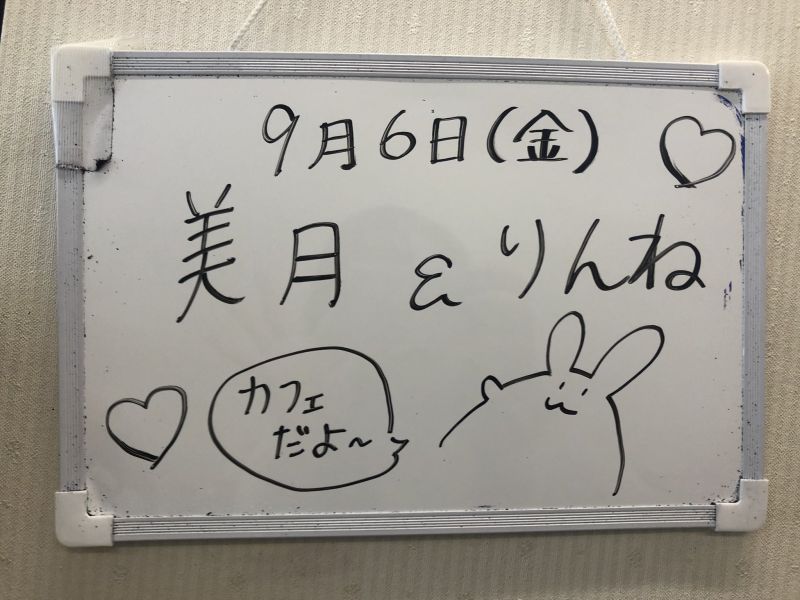 9月6日(金)
美月 & りんね
カフェ
だよ~